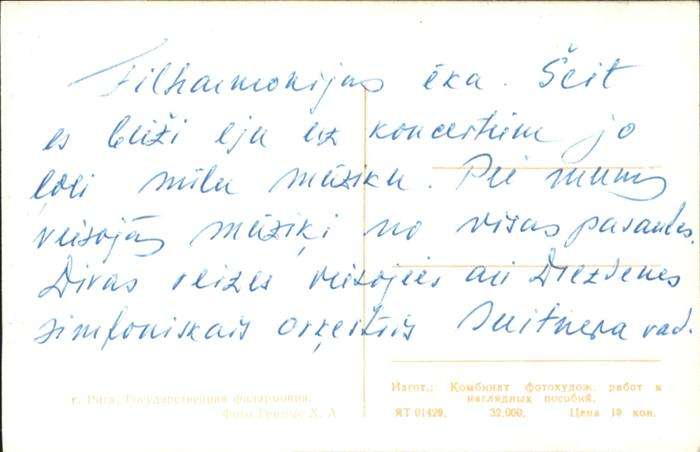 Filharmonijas ēka. Šeit
es bieži eju uz koncertiem jo
ļoti mīlu mūziku. Pie mums
viesojās mūziķi no visas pasaules.
Divas reizes viesojies arī Drezdenes
simfoniskais orķestris Suitnera vad.
г. Рига. Государственная филармония.
Фото Гринис Х. А
Изгот.: Комбинат фотохудож. работ и
наглядных пособий.
ЯТ 01429. 32.000. Цена 10 коп.